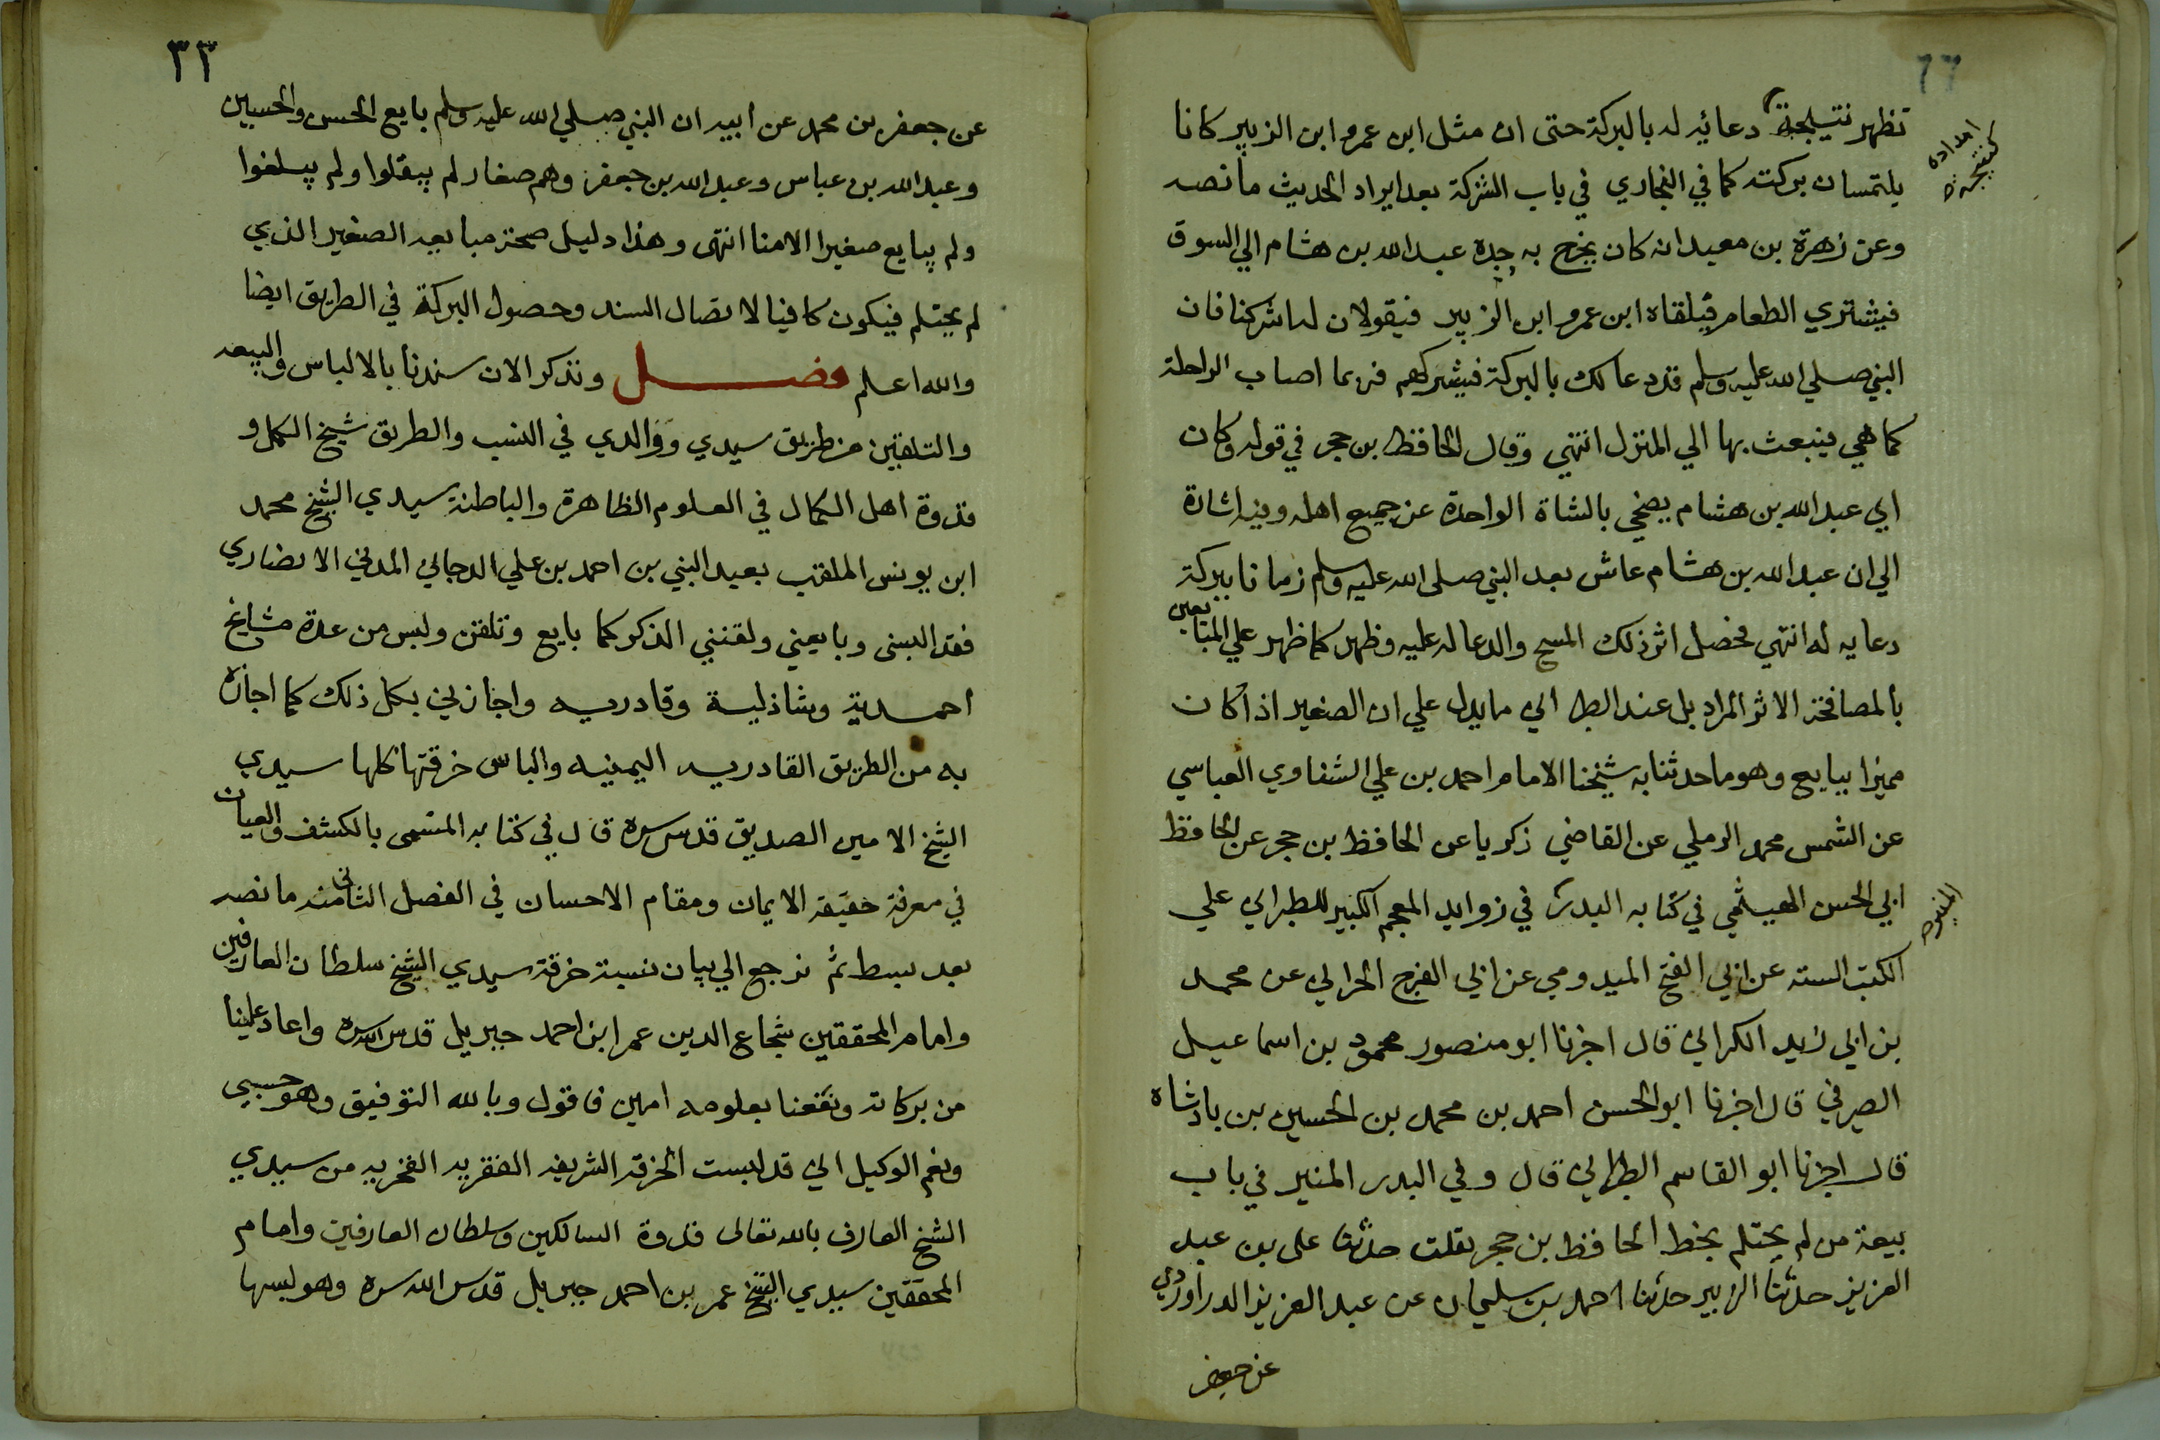 تظهر نتيجة دعائه له بالبركة حتى ان مثل ابن عمرو ابن الزبير كانا
امداده
كنتيجة صح
يلتمسان بركته كما في البخاري في باب الشركة بعد ايراد الحديث ما نصه
وعن زهرة بن معبد انه كان يخرج به جده عبد الله بن هشام الي السوق
فيشتري الطعام فيلقاه ابن عمرو ابن الزبير فيقولان له اشركنا فان
النبي صلي الله عليه وسلم قد دعا لك بالبركة فيشركهم فربما اصاب الراحلة
كما هي فيبعث بها الي المنزل انتهي وقال الحافظ بن حجر في قوله وكان
ابي عبد الله بن هشام يضحي بالشاة الواحدة عن جميع اهله وفيه اشارة
الي ان عبد الله بن هشام عاش بعد النبي صلى الله عليه وسلم زمانا ببركة
دعايه له انتهي فحصل اثر ذلك المسح والدعا له عليه وظهر كما ظهر علي المتابعين
بالمصافحة الاثر المراد بل عند الطبراني ما يدل علي ان الصغير اذا كان
مميزا يبايع وهو ما حدثنا به شيخنا الامام احمد بن علي الشناوي العباسي
عن الشمس محمد الرملي عن القاضي زكريا عن الحافظ بن حجر عن الحافظ
ابي الحسن الهيثمي في كتابه البدر في زوايد المعجم الكبير للطبراني علي
المنير صح
الكتب الستة عن ابي الفتح الميدومي عن ابي الفرج الحراني عن محمد
بن ابي زيد الكراني قال اخبرنا ابو منصور محمود بن اسماعيل
الصيرفي قال اخبرنا ابو الحسن احمد بن محمد بن الحسين بن بادشاه
قال اخبرنا ابو القاسم الطبراني قال وفي البدر المنير في باب
بيعة من لم يحتلم بخط الحافظ بن حجر نقلت حدثنا على بن عبد
العزيز حدثنا الزبير حدثنا احمد بن سليمان عن عبد العزيز الدراوردي
عن جعفر
٣٣
عن جعفر بن محمد عن ابيه ان النبي صلي الله عليه وسلم بايع الحسن والحسين
وعبد الله بن عباس وعبد الله بن جعفر وهم صغار لم يبقلوا ولم يبلغوا
ولم يبايع صغيرا الا منا انتهى وهذا دليل صحة مبايعة الصغير الذي
لم يحتلم فيكون كافيا لاتصال السند وحصول البركة في الطريق ايضا
والله اعلم فصل ونذكر الان سندنا بالالباس والبيعه
والتلقين من طريق سيدي ووالدي في النسب والطريق شيخ الكمل و
قدوة اهل الكمال في العلوم الظاهرة والباطنة سيدي الشيخ محمد
ابن يونس الملقب بعبد النبي بن احمد بن علي الدجاني المدني الانصاري
فقد البسنى وبايعني ولقنني الذكر كما بايع وتلقن ولبس من عدة مشايخ
احمدية وشاذلية وقادريه واجازني بكل ذلك كما اجازه
به من الطريق القادريه اليمنيه والباس خرقتها كلها سيدي
الشيخ الامين الصديق قدس سره قال في كتابه المسمى بالكشف والعيان
في معرفة حقيقة الايمان ومقام الاحسان في الفصل الثاني منه ما نصه
بعد بسط ثم نرجع الي بيان نسبة خرقة سيدي الشيخ سلطان العارفين
وامام المحققين شجاع الدين عمر ابن احمد جبريل قدس الله سره واعاد علينا
من بركاته ونفعنا بعلومه امين فاقول وبالله التوفيق وهو حسبي
ونعم الوكيل اني قد لبست الخرقه الشريفه الفقريه الفخريه من سيدي
الشيخ العارف بالله تعالى قدوة السالكين وسلطان العارفين وامام
المحققين سيدي الشيخ عمر بن احمد جبريل قدس الله سره وهو لبسها